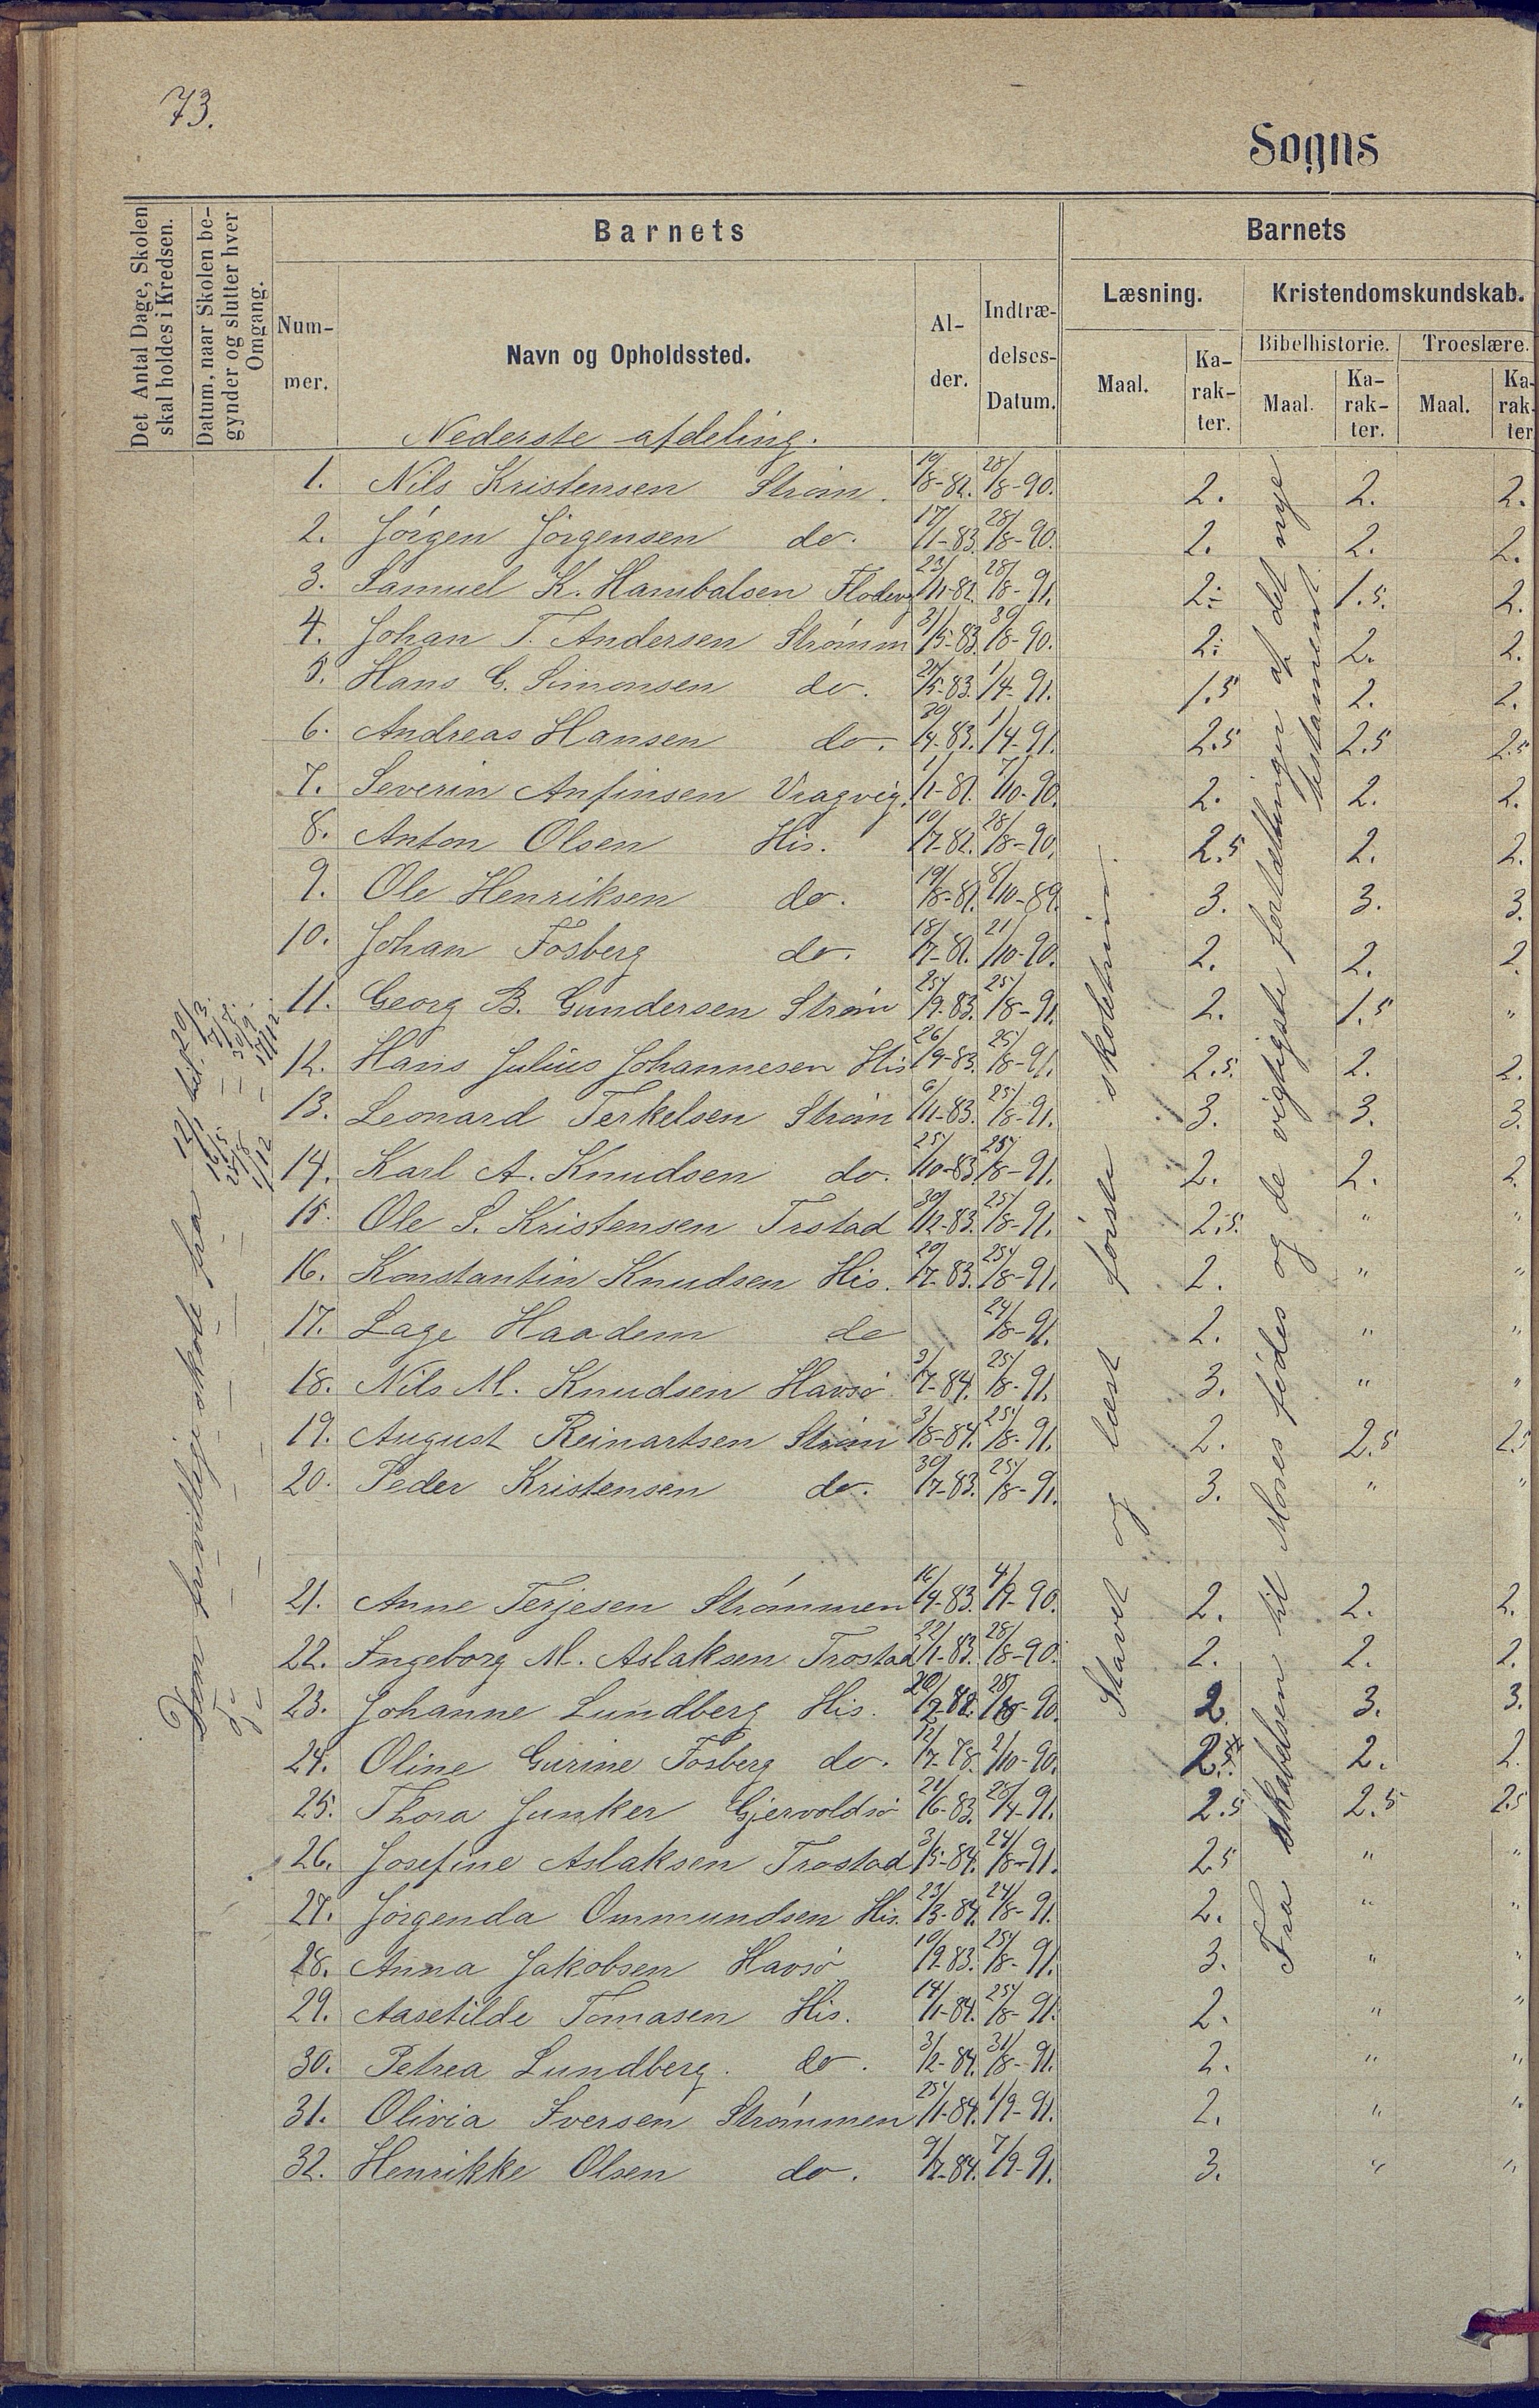 73.
Sogns
Det Antal Dage, Skolen skal holdes i Kredsen.
Datum, naar Skolen begynder og slutter hver Omgang.
Barnets
Barnets
Nummer.
Navn og Opholdssted.
Alder.
Indtrædelses-Datum.
Læsning.
Kristendomskundskab.
Maal.
Karakter.
Bibelhistorie.
Troeslære.
Maal.
Karakter.
Maal.
Karakter
Nederste afdeling.
1. Nils Kristensen Strøm. 19/8-82. 28/8-90. 2. 2. 2.
2. Jörgen Jörgensen do. 17/1-83. 28/8-90. 2. 2. 2.
3. Samuel K. Hambalsen Flödevg 23/11-82. 28/8-91. 2. 1.5. 2.
4. Johan T. Andersen Strömm 31/5-83. 30/8-90. 2. 2. 2.
5. Hans G. Simonsen do. 21/5-83. 1/4-91. 1.5 2. 2.
6. Andreas Hansen do. 30/4-83. 1/4-91. 2.5 2.5 2.5
7. Severin Anfinsen Vragvig. 1/1-81. 7/10-90. 2. 2. 2.
8. Anton Olsen His. 10/7-82. 28/8-90. 2.5 2. 2.
9. Ole Henriksen do. 19/8-81. 8/10-89. 3. 3. 3.
10. Johan Fosberg do. 18/7-81. 21/10-90. 2. 2. 2.
11. Georg B. Gundersen Ström 25/9-83. 25/8-91. 2. 1.5 "
12. Hans Julius Johannesen His 26/9-83. 25/8-91. 2.5. 2. 2.
13. Leonard Terkelsen Ström 6/11-83. 25/8-91. 3. 3. 3.
14. Karl A. Knudsen do. 25/10-83. 25/8-91. 2. 2. 2.
15. Ole S. Kristensen Trstad 30/12-83. 25/8-91. 2.5. " "
16. Konstantin Knudsen His. 20/7-83. 25/8-91. 2. " "
17. Lage Haadem do 24/8-91. 2. " "
18. Nils M. Knudsen Havsö 9/7-84. 25/8-91. 3. " "
19. August Reinartsen Ström 3/8-84. 25/8-91. 2. 2.5 2.5
20. Peder Kristensen do. 30/7-83. 25/8-91. 3. " "
21. Anne Terjesen Strömmen 16/9-83. 4/9-90. 2. 2. 2.
22. Ingeborg M. Aslaksen Trostad 22/1-83. 28/8-90. 2. 2. 2.
23. Johanne Lundberg His. 20/9-82. 90. 2 3. 3.
24. Oline Gurine Fosberg do. 12/7-78. 2/10-90. 2.5. 2. 2.
25. Thora Junker Gjervoldsö 21/6-83. 20/4-91. 2.5 2.5 2.5
26. Josefine Aslaksen Trostad 3/5-84. 24/8-91. 2.5 " "
27. Jörgenda Ommundsen His. 23/3-84. 24/8-91. 2. " "
28. Anna Jakobsen Havsö 10/9-83. 25/8-91. 3. " "
29. Aasetilde Tomasen His. 14/1-84. 25/8-91. 2. " "
30. Petrea Lundberg. do. 3/2-84. 31/8-91. 2. " "
31. Olivia Iversen Strömmen 25/1-84. 1/9-91. 2. " "
32. Henrikke Olsen do. 9/7-84. 7/9-91. 3. " "
Stavet og læst förste skoletrin.
Fra skabelsen til Moses födes og de vigtigste fortællinger af det nye testament
Den frivillige skole fra 12/1 til 20/3.